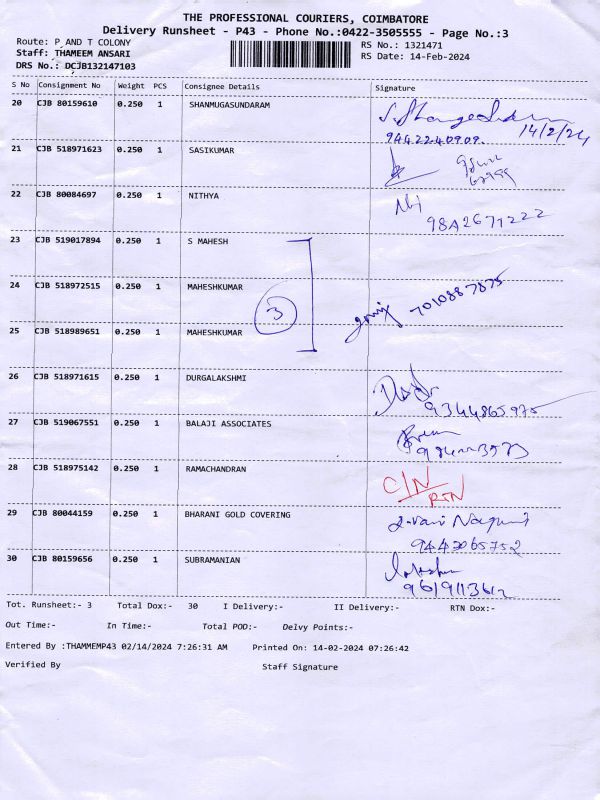 THE PROFESSIONAL COURIERS, COIMBATORE
Delivery Runsheet - P43 - Phone No.:0422-3505555 - Page No.:3
Route: P AND T COLONY
RS No.: 1321471
Staff: THAMEEM ANSARI
RS Date: 14-Feb-2024
DRS No.: DCJB132147103
S No Consignment No Weight PCS Consignee Details Signature
20 CJB 80159610 0.250 1 SHANMUGASUNDARAM
14/2/24
21 CJB 518971623 0.250 1 SASIKUMAR
22 CJB 80084697 0.250 1 NITHYA
9842671222
23 CJB 519017894 0.250 1 S MAHESH
24 CJB 518972515 0.250 1 MAHESHKUMAR
3 7010887875
25 CJB 518989651 0.250 1 MAHESHKUMAR
26 CJB 518971615 0.250 1 DURGALAKSHMI
9344865975
27 CJB 519067551 0.250 1 BALAJI ASSOCIATES
28 CJB 518975142 0.250 1 RAMACHANDRAN
C/N
RTN
29 CJB 80044159 0.250 1 BHARANI GOLD COVERING
9443065752
30 CJB 80159656 0.250 1 SUBRAMANIAN
Tot. Runsheet:- 3 Total Dox:- 30 I Delivery:- II Delivery:- RTN Dox:-
Out Time:- In Time:- Total POD:- Delvy Points:-
Entered By :THAMMEMP43 02/14/2024 7:26:31 AM Printed On: 14-02-2024 07:26:42
Verified By Staff Signature